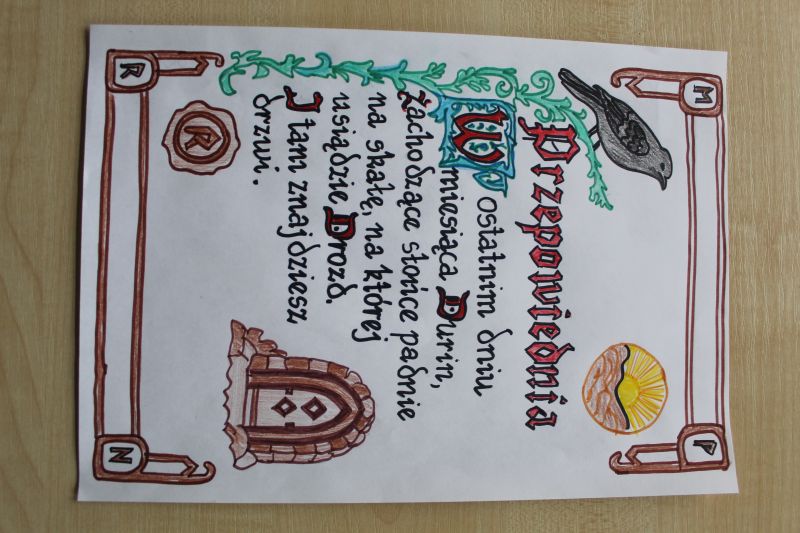 M P
Przepowiednia
W ostatnim dniu
miesiąca Durin,
Zachodzące słońce padnie
na skałę, na której
usiądzie Drozd.
I tam znajdziesz
drzwi.
R
R N